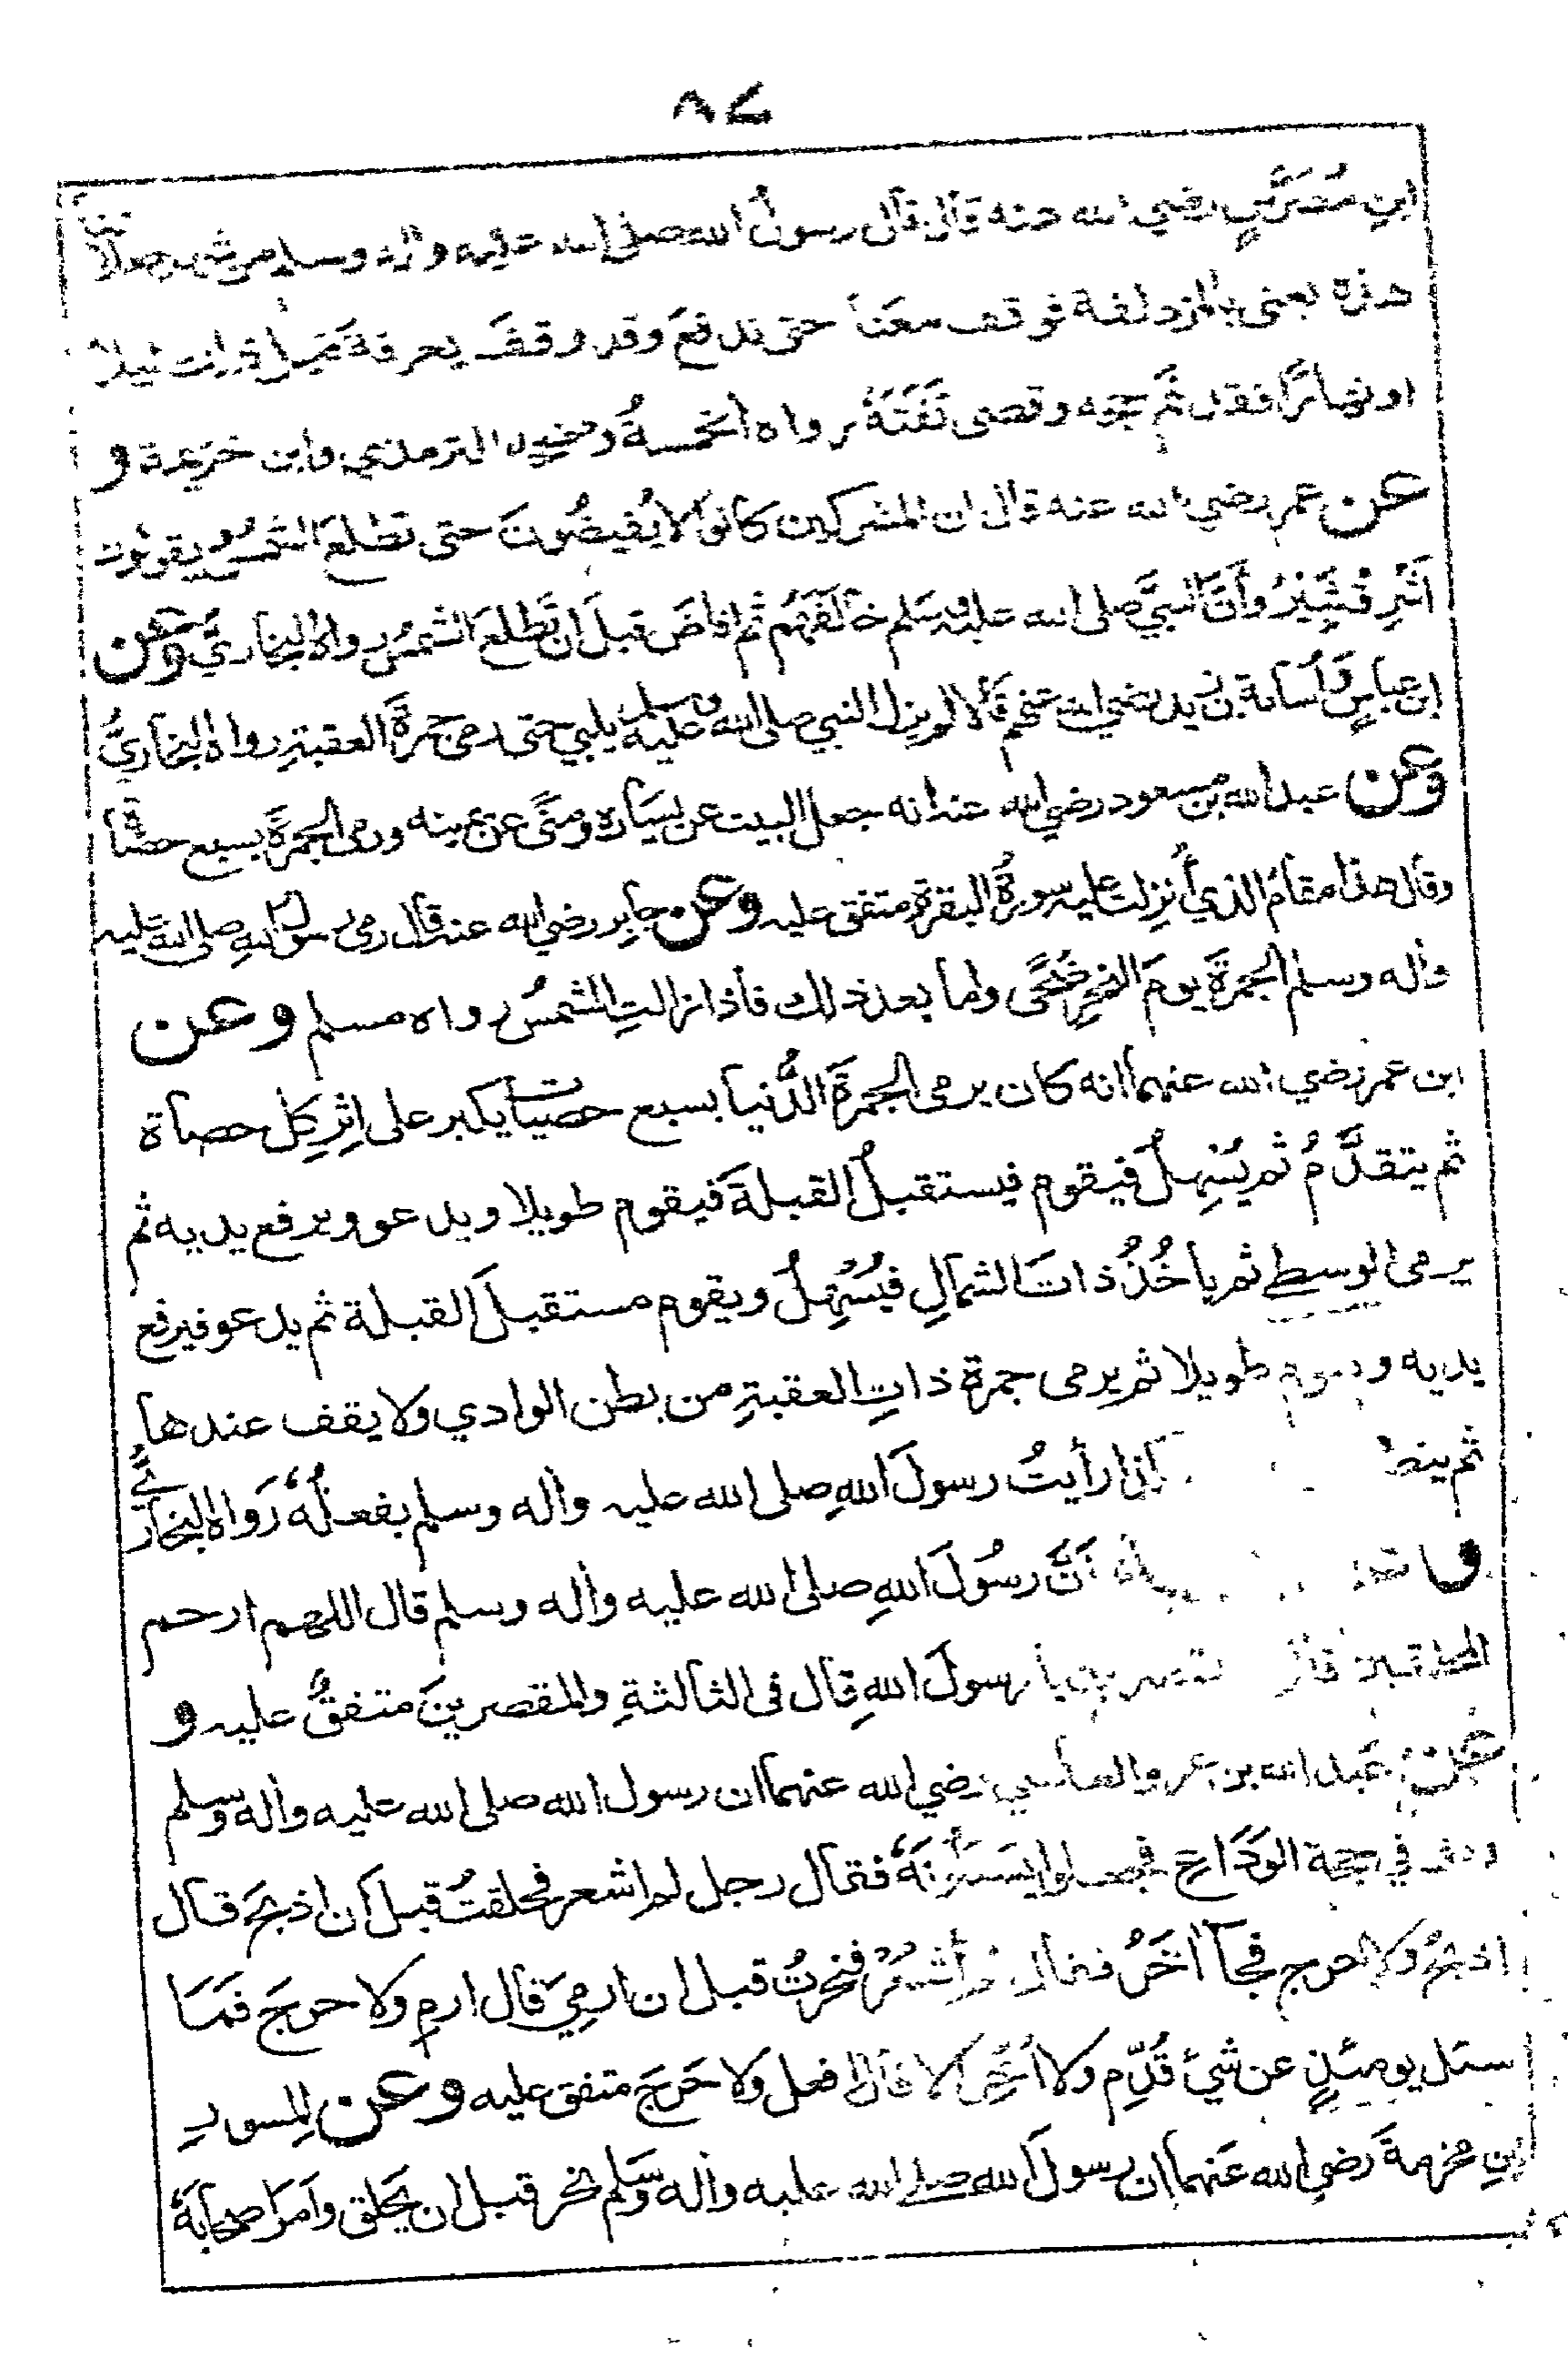 ٨٤
ابنِ مُضَرِّسٍ رضي الله عنه قال قال رسولُ الله صلى الله عليه واله وسلم من شهد صلاتنا
هذه يعنى بالمزدلفة فوقف معَنا حتى ندفعَ وقد وقفَ بعرفةَ قبل ذلك ليلا
او نهاراً فقد تَم حجه وقضى تَفَثَهُ رواه الخمسةُ وصححه الترمذي وابن خزيمة و
عن عمر رضي الله عنه قال ان المشركين كانوا لا يُفيضُونَ حتى تطلعَ الشمسُ ويقولون
اَشْرِقْ ثَبِيْرُ وأَنَّ النبيَّ صلى الله عليه وسلم خالَفَهُم ثم افاضَ قبلَ ان تَطلعَ الشمسُ رواه البخاريُّ وعن
ابن عباسٍ وأُسامة بن زيد رضي الله عنهم قالا لم يزل النبي صلى الله عليه وسلم يلبي حتى رمى جمرةَ العقبةِ رواه البخاريُّ
وعن عبد الله بن مسعود رضي الله عنه انه جعل البيت عن يسَاره ومِنًى عن يمينه ورمى الجمرةَ بسبع حصاة
وقال هذا مقامُ الذي أُنزِلت عليه سورةُ البقرة متفق عليه وعن جابِر رضي الله عنه قال رمى رسول اللهِ صلى الله عليه
واٰله وسلم الجمرةَ يومَ النحرِ ضُحًى واما بعد ذلك فاذا زالتِ الشمسُ رواه مسلم وعن
ابن عمر رضي الله عنهما انه كان يرمى الجمرةَ الدُّنيا بسبع حصيات يكبر على اِثرِ كِل حصاة
ثم يتقدَّمُ ثم يُسْهِلُ فيقوم فيستقبلُ القبلةَ فيقوم طويلا ويدعو ويرفع يديه ثم
يرمى الوسطى ثم ياخُذُ ذاتَ الشمالِ فيُسْهِلُ ويقوم مستقبلَ القبلة ثم يدعو فيرفع
يديه ويقوم طويلا ثم يرمى جمرة ذاتِ العقبةِ من بطن الوادي ولا يقف عندها
ثم ينص كذا رأيتُ رسولَ اللهِ صلى الله عليه واٰله وسلم يفعلُهٗ رَواه البخاريُّ
و اَنَّ رسُولَ اللهِ صلى الله عليه واٰله وسلم قال اللهم ارحم
المحلقين قالوا يا رسولَ اللهِ قال فى الثالثةِ والمقصرينَ متفقٌ عليه و
عن عَبد الله بن عمرو العاصي رضي الله عنهما ان رسول الله صلى الله عليه واٰله وسلم
وقف في حجة الوَدَاعِ فجعلوا يسئلونَهٗ فقال رجل لم اشعر فحلقتُ قبلَ ان اذبحَ قال
اذبحْ ولا حرج فجآ اٰخَرُ فقال لم أشعُرْ فنحرتُ قبل ان ارمِيَ قال ارمِ ولا حرجَ فمَا
سئل يومئذٍ عن شئ قُدِّم ولا أُخِّر الا قال افعل ولا حَرَجَ متفق عليه وعن المِسورِ
ابنِ مخرمةَ رضي الله عَنهما ان رسولَ الله صلى الله عليه واٰله وسَلم نحر قبل ان يَحلق واَمَرَ اصحابَهٗ